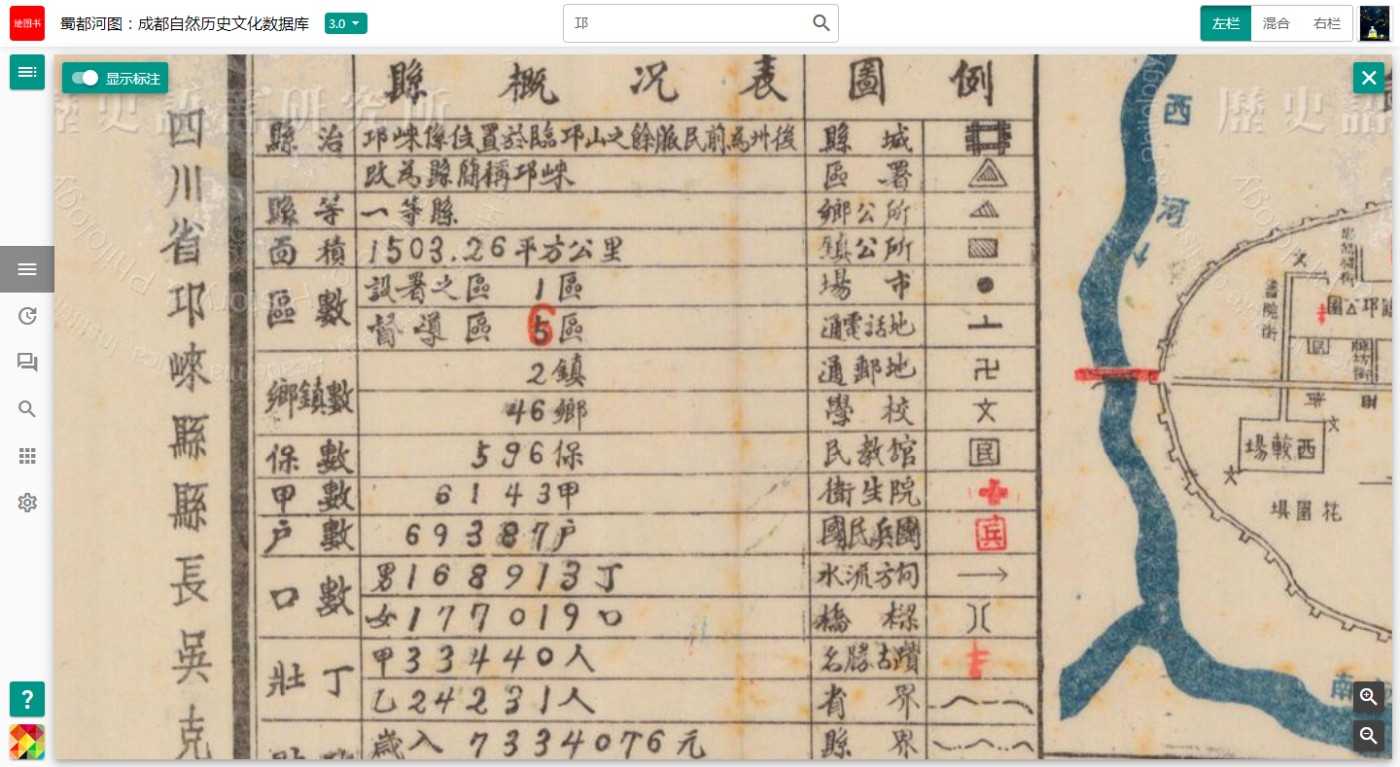 地图书
蜀都河图：成都自然历史文化数据库
3.0
邛
左栏
混合
右栏
显示标注
歷史語言研究所
四川省邛崍縣縣長吳克
縣概况表
圖例
縣治
邛崍係位置於臨邛山之餘脈民前為州後
改為縣簡稱邛崍
縣等
一等縣
面積
1503.26平方公里
區數
設署之區 1區
督導區 6區
鄉鎮數
2鎮
46鄉
保數
596保
甲數
6143甲
户數
69387户
口數
男168913丁
女177019口
壯丁
甲33440人
乙24231人
歲入 7334076元
縣城
區署
鄉公所
鎮公所
場市
通電話地
通郵地
學校
文
民教館
民
衛生院
國民兵團
兵
水流方向
橋樑
名勝古蹟
省界
縣界
西河
歷史語
書院街
文
文
西較場
花園埧
南
?